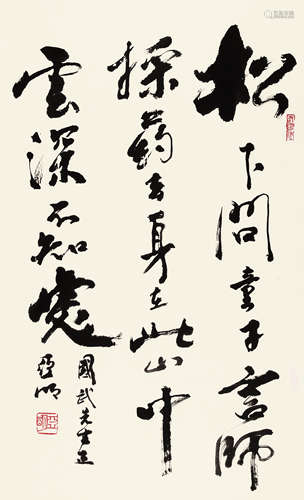 松下問童子言師
採药去身在此山中
雲深不知處
國武先生正
亞明